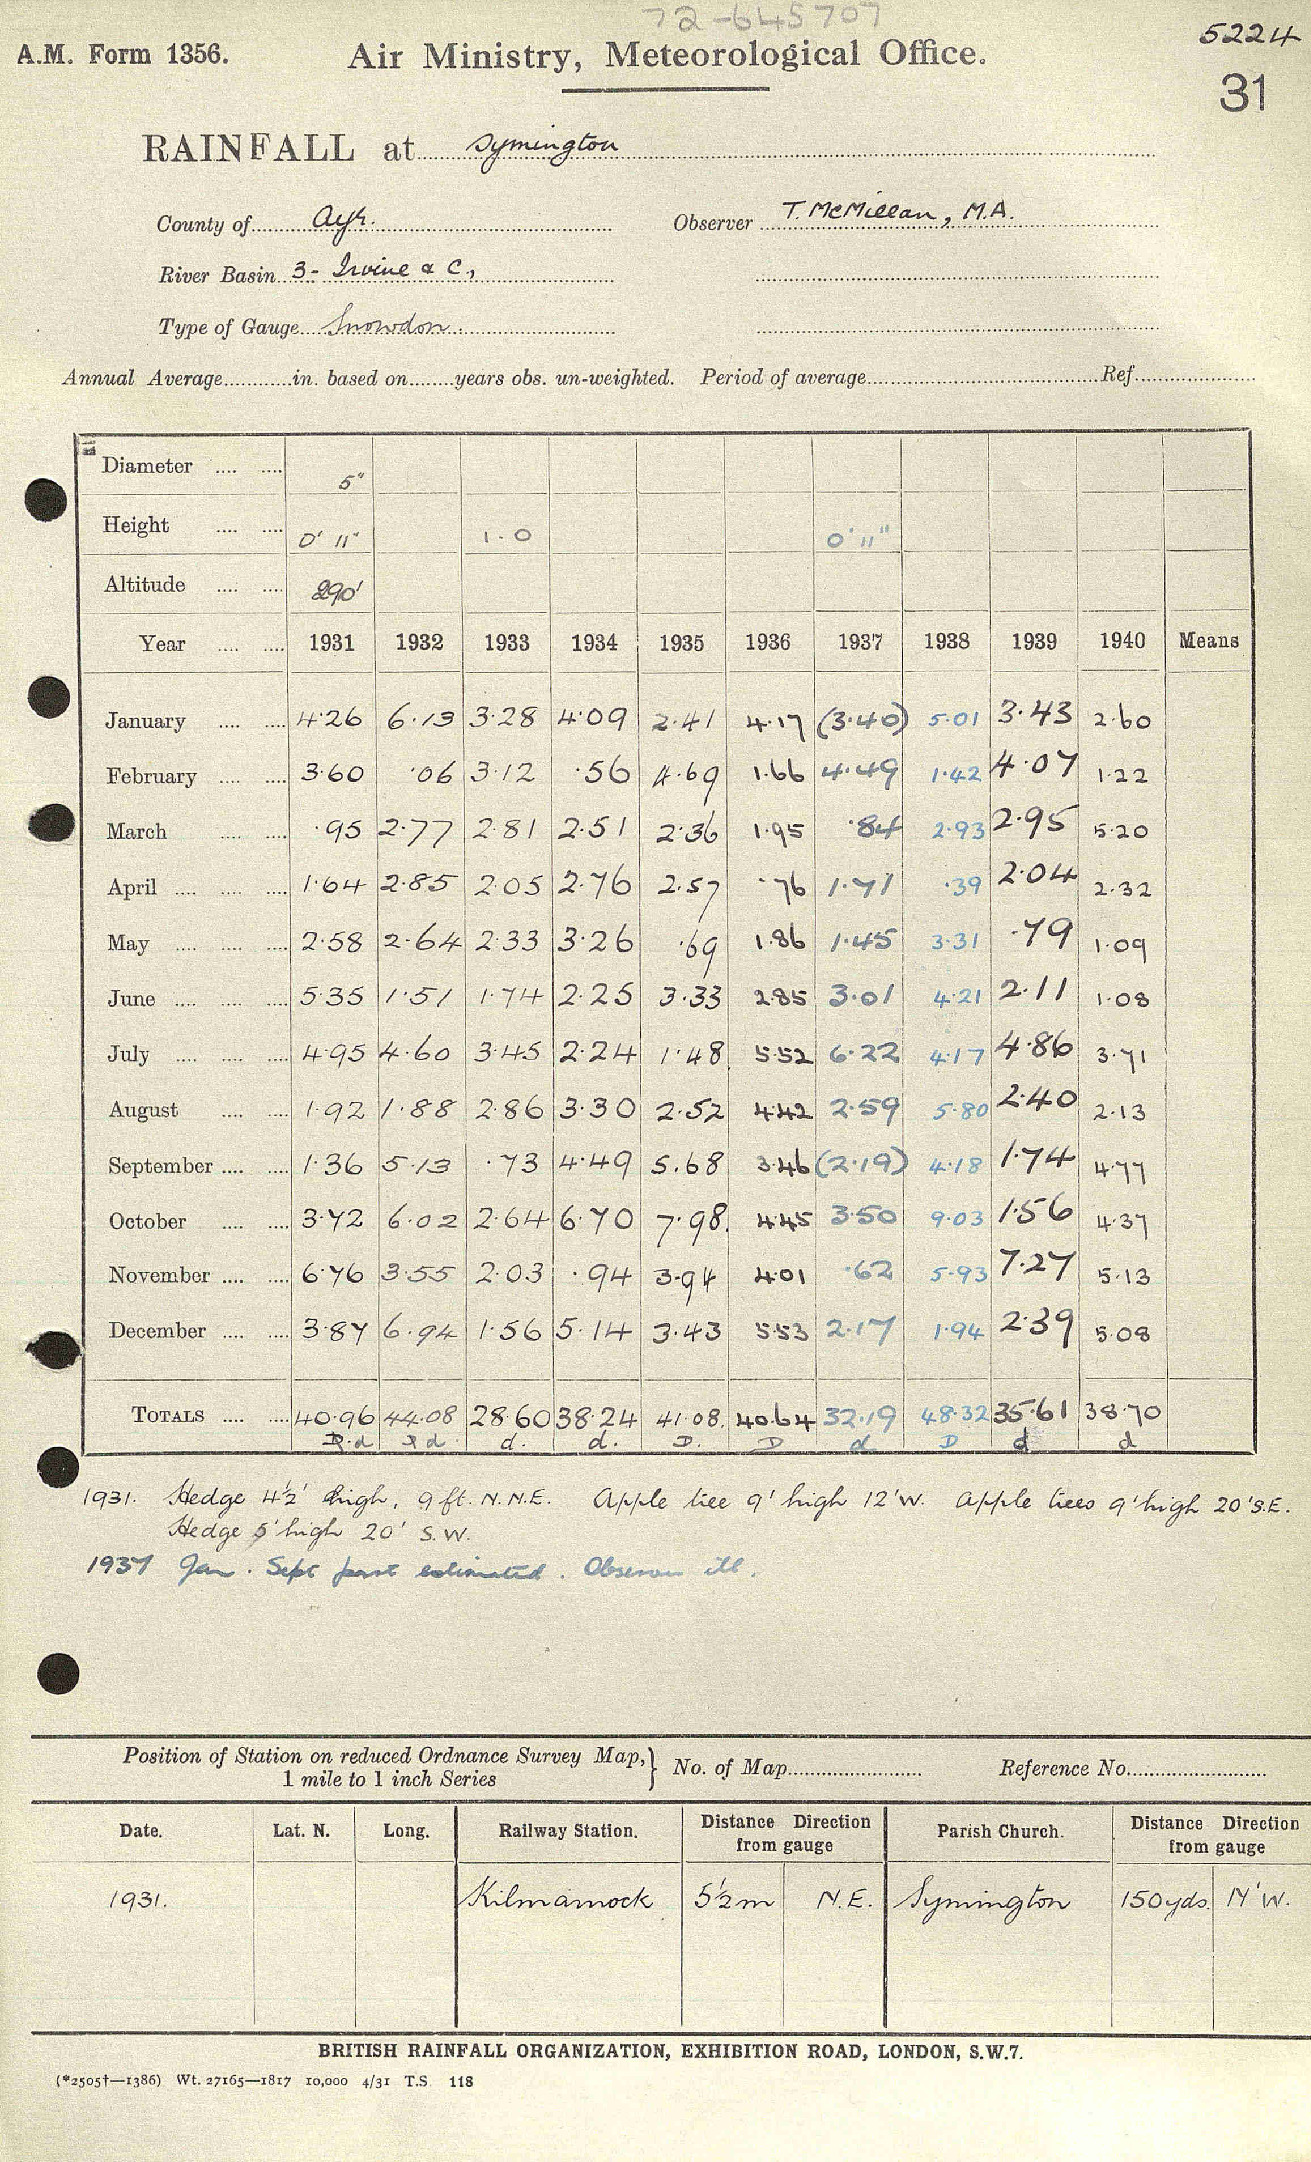 72-645707
5224
A.M. Form 1356. Air Ministry, Meteorological Office.
31
RAINFALL at Symington
County of Ayr. Observer T. McMillan, M.A.
River Basin 3- Irvine & C.,
Type of Gauge Snowdon
Annual Average in. based on years obs. un-weighted. Period of average Ref
Diameter 5"
Height 0' 11" 1.0 0' 11"
Altitude 290'
Year 1931 1932 1933 1934 1935 1936 1937 1938 1939 1940 Means
January 4.26 6.13 3.28 4.09 2.41 4.17 (3.40) 5.01 3.43 2.60
February 3.60 .06 3.12 .56 4.69 1.66 4.49 1.42 4.07 1.22
March .95 2.77 2.81 2.51 2.36 1.95 .84 2.93 2.95 5.20
April 1.64 2.85 2.05 2.76 2.57 .76 1.71 .39 2.04 2.32
May 2.58 2.64 2.33 3.26 .69 1.86 1.45 3.31 .79 1.09
June 5.35 1.51 1.74 2.25 3.33 2.85 3.01 4.21 2.11 1.08
July 4.95 4.60 3.45 2.24 1.48 5.52 6.22 4.17 4.86 3.71
August 1.92 1.88 2.86 3.30 2.52 4.42 2.59 5.80 2.40 2.13
September 1.36 5.13 .73 4.49 5.68 3.46 (2.19) 4.18 1.74 4.77
October 3.72 6.02 2.64 6.70 7.98 4.45 3.50 9.03 1.56 4.37
November 6.76 3.55 2.03 .94 3.94 4.01 .62 5.93 7.27 5.13
December 3.87 6.94 1.56 5.14 3.43 5.53 2.17 1.94 2.39 5.08
TOTALS 40.96 44.08 28.60 38.24 41.08 40.64 32.19 48.32 35.61 38.70
d d d. d. D. D d D d d
1931. Hedge 4½' high, 9 ft. N.N.E. Apple tree 9' high 12' W. Apple trees 9' high 20' S.E.
Hedge 5' high 20' S.W.
1937 Jan. Sept part estimated. Observer ill.
Position of Station on reduced Ordnance Survey Map,
1 mile to 1 inch Series
No. of Map Reference No.
Date. Lat. N. Long. Railway Station. Distance Direction from gauge Parish Church. Distance Direction from gauge
1931. Kilmarnock 5½ m N.E. Symington 150 yds. N'W.
BRITISH RAINFALL ORGANIZATION, EXHIBITION ROAD, LONDON, S.W.7.
(*2505†—1386) Wt. 27165—1817 10,000 4/31 T.S. 118